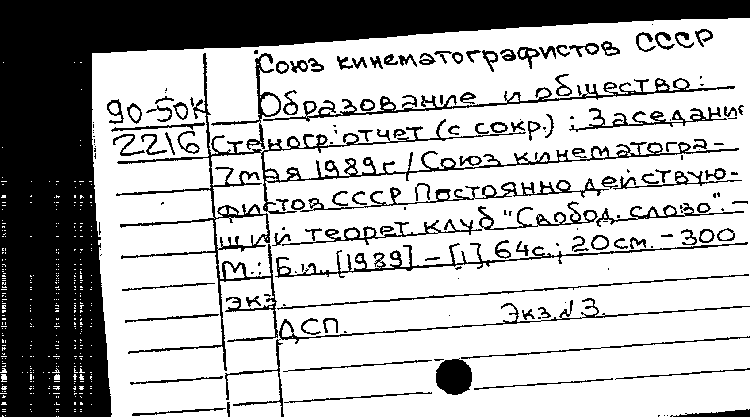 Союз кинематографистов СССР
90-50к Образование и общество:
2216 Стеногр. отчет (с сокр.); Заседание
7 мая 1989 г / Союз кинематогра-
фистов СССР. Постоянно действую-
щий теорет. клуб "Свобод. слово". -
М.: Б.и., [1989] - [1], 64с.; 20 см. - 300
экз.
ДСП. Экз. № 3.